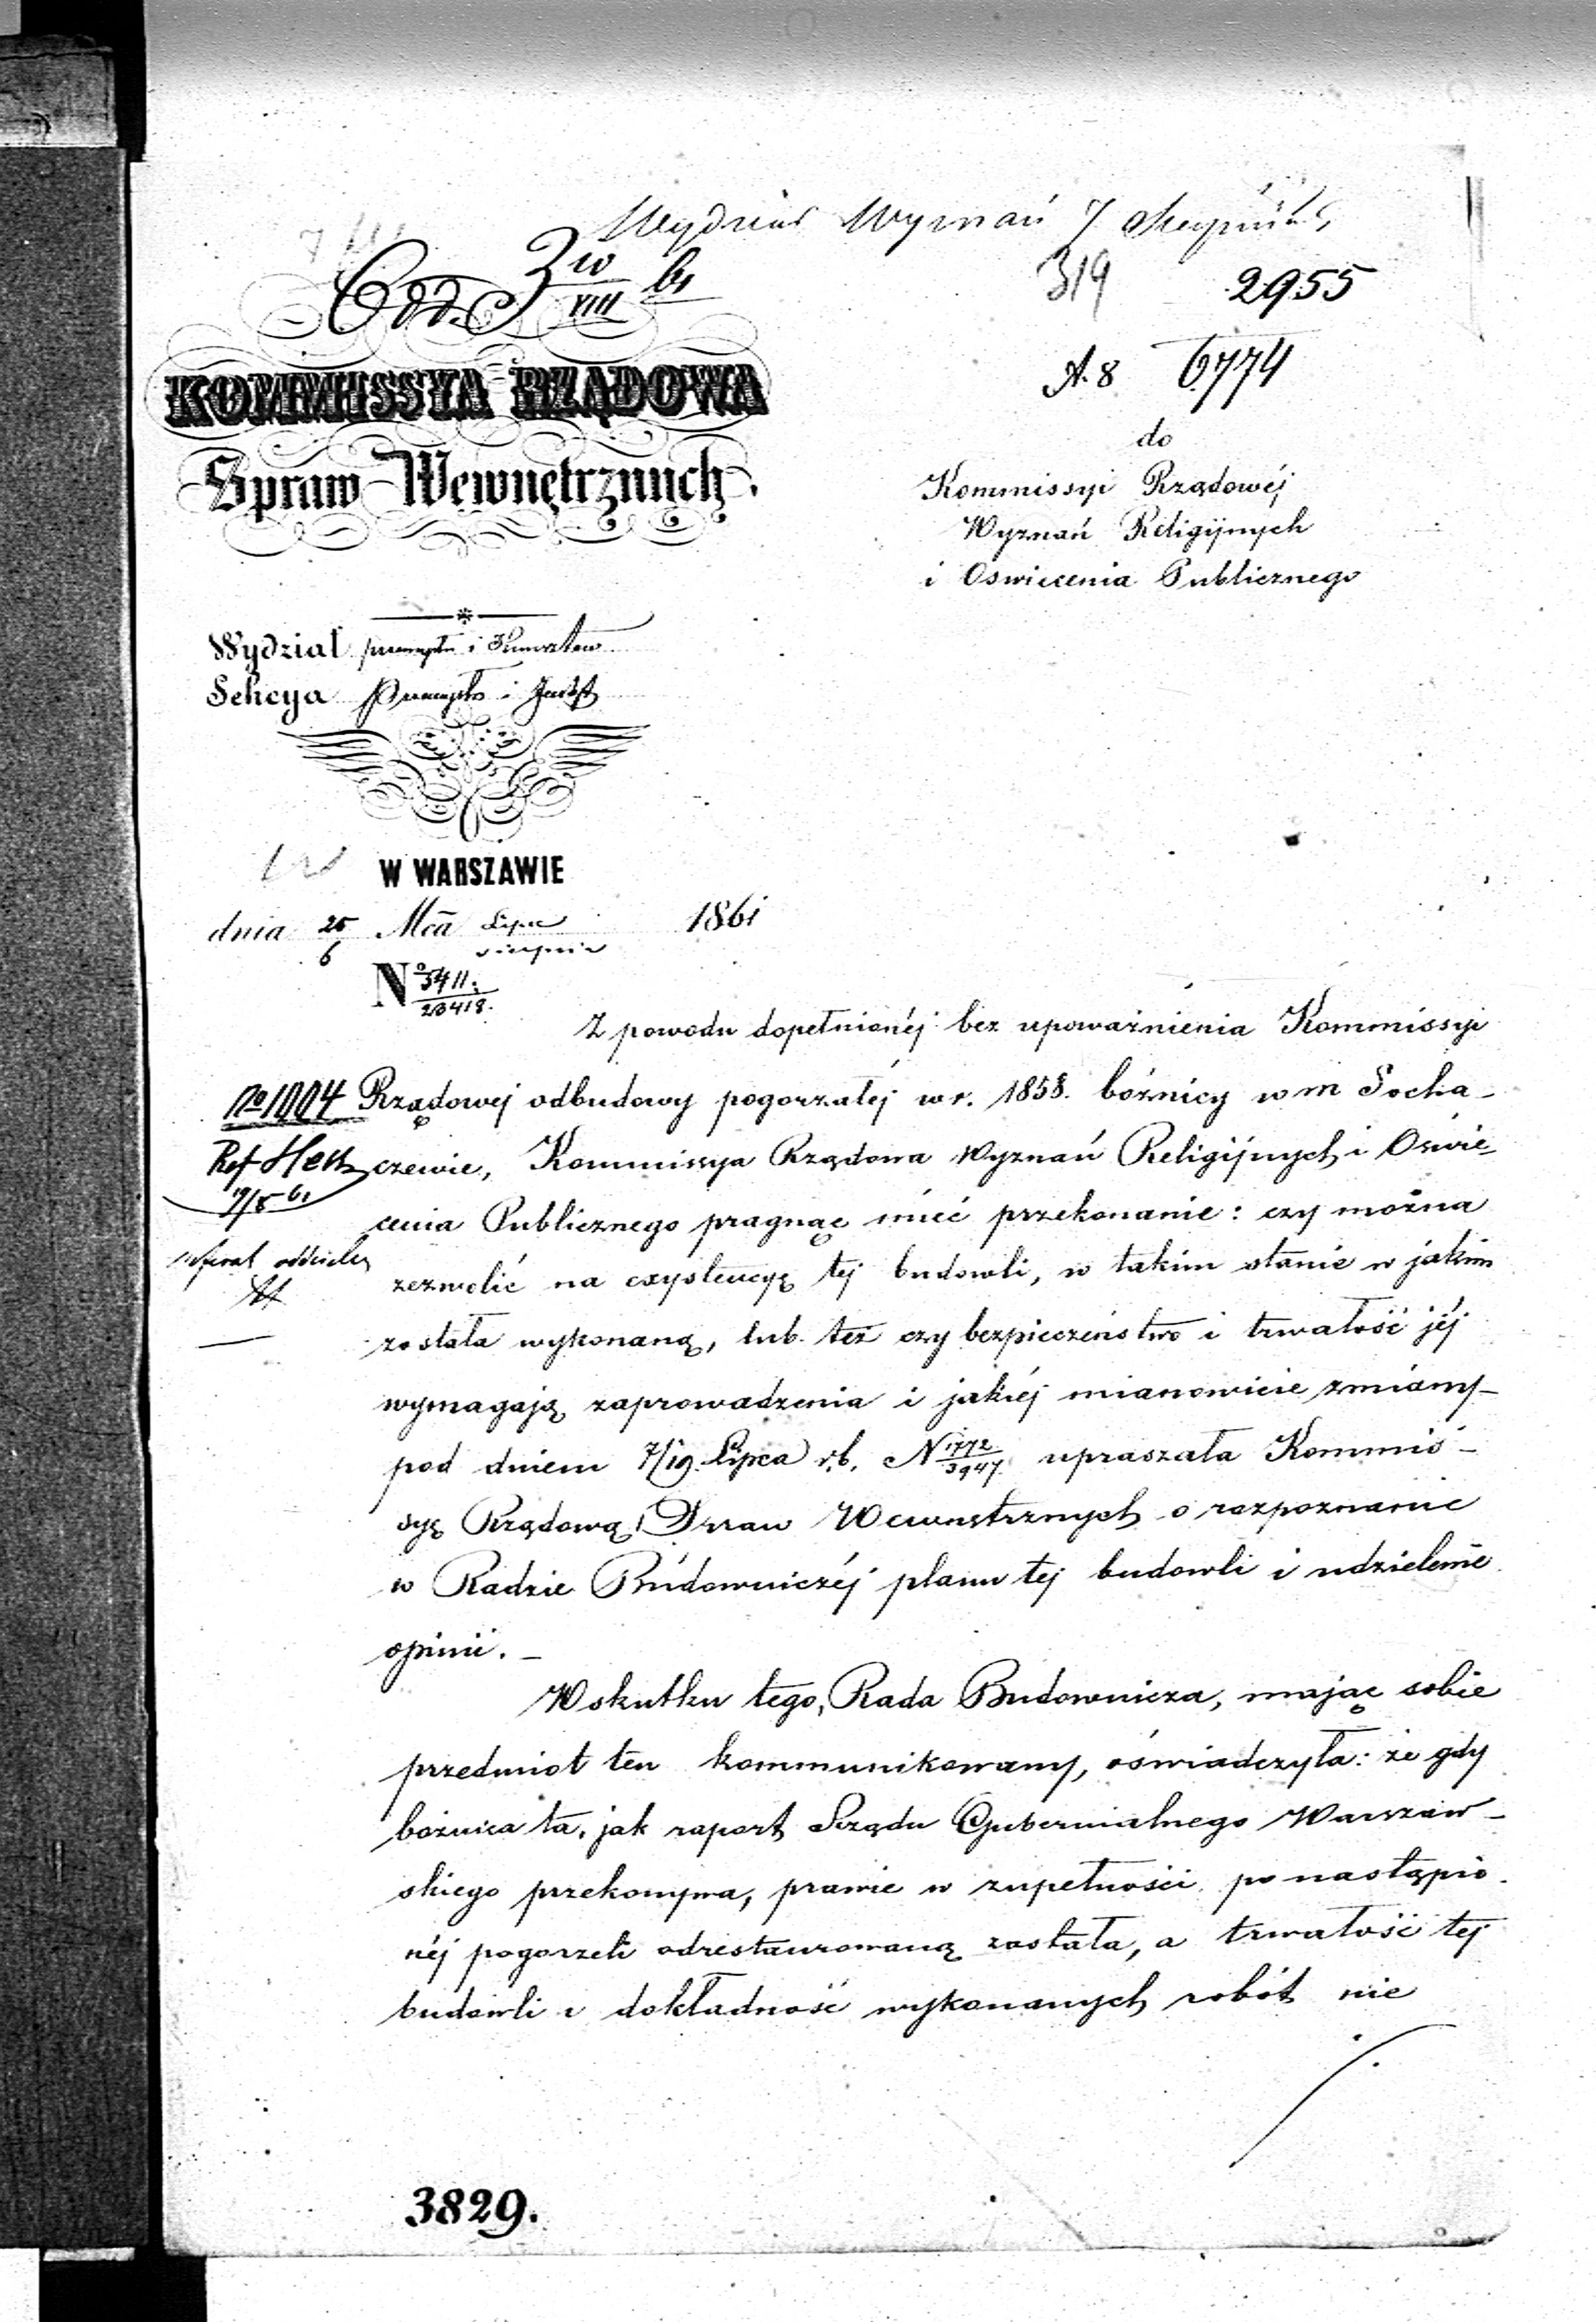 Wydział Wyznań 7 Sierpnia
319 2955
Odd. 3 w/VIII 61
A. 8 6774
KOMMISSYA RZĄDOWA
Spraw Wewnętrznych.
do
Kommissyi Rządowéj
Wyznań Religijnych
i Oswiecenia Publicznego
Wydział przemysłu i Kunsztów
Sekcya Przemysłu i
W WARSZAWIE
dnia 25/6 Mca Lipca/sierpnia 1861
No 3411/23418.
Z powodu dopełnionéj bez upoważnienia Kommissyi
No 1004 Rządowej odbudowy pogorzałéj w r. 1858. bóżnicy w m Socha-
Ref czewie, Kommissya Rządowa Wyznań Religijnych i Oświe-
19/8 61
cenia Publicznego pragnąc mieć przekonanie: czy można
zezwolić na exystencyę téj budowli, w takim stanie w jakim
została wykonaną, lub też czy bezpieczeństwo i trwałość jéj
wymagają zaprowadzenia i jakiéj mianowicie zmiany-
pod dniem 7/19 Lipca r.b. N 1772/3947 upraszała Kommis-
syę Rządową Spraw Wewnętrznych o rozpoznanie
w Radzie Budowniczéj planu téj budowli i udzielenie
opinii. _
W skutku tego, Rada Budownicza, mając sobie
przedmiot ten kommunikowany, oświadczyła: że gdy
bożnica ta, jak raport Rządu Gubernialnego Warszaw-
skiego przekonywa, prawie w zupełności po nastąpio-
néj pogorzeli odrestaurowaną została, a trwałość téj
budowli i dokładność wykonanych robót nie
3829.